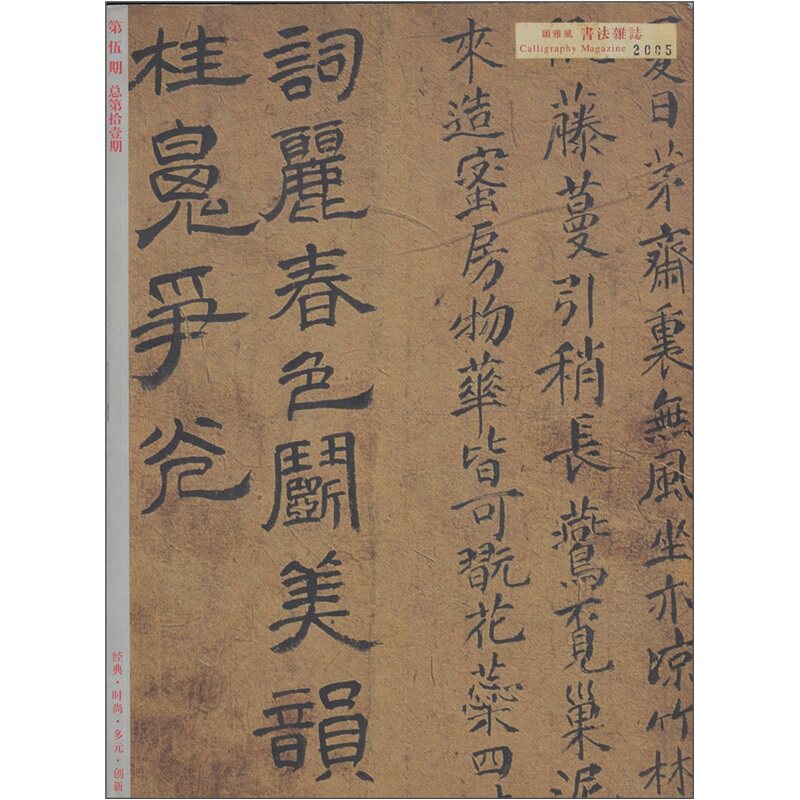 頌雅風 書法雜誌
Calligraphy Magazine 2005
夏日茅齋裏無風坐亦涼竹林
藤蔓引稍長鶯覓巢泥
來造蜜房物華皆可翫花蕊四
詞麗春色鬭美韻
桂爭光
第伍期 总第拾壹期
经典·时尚·多元·创新